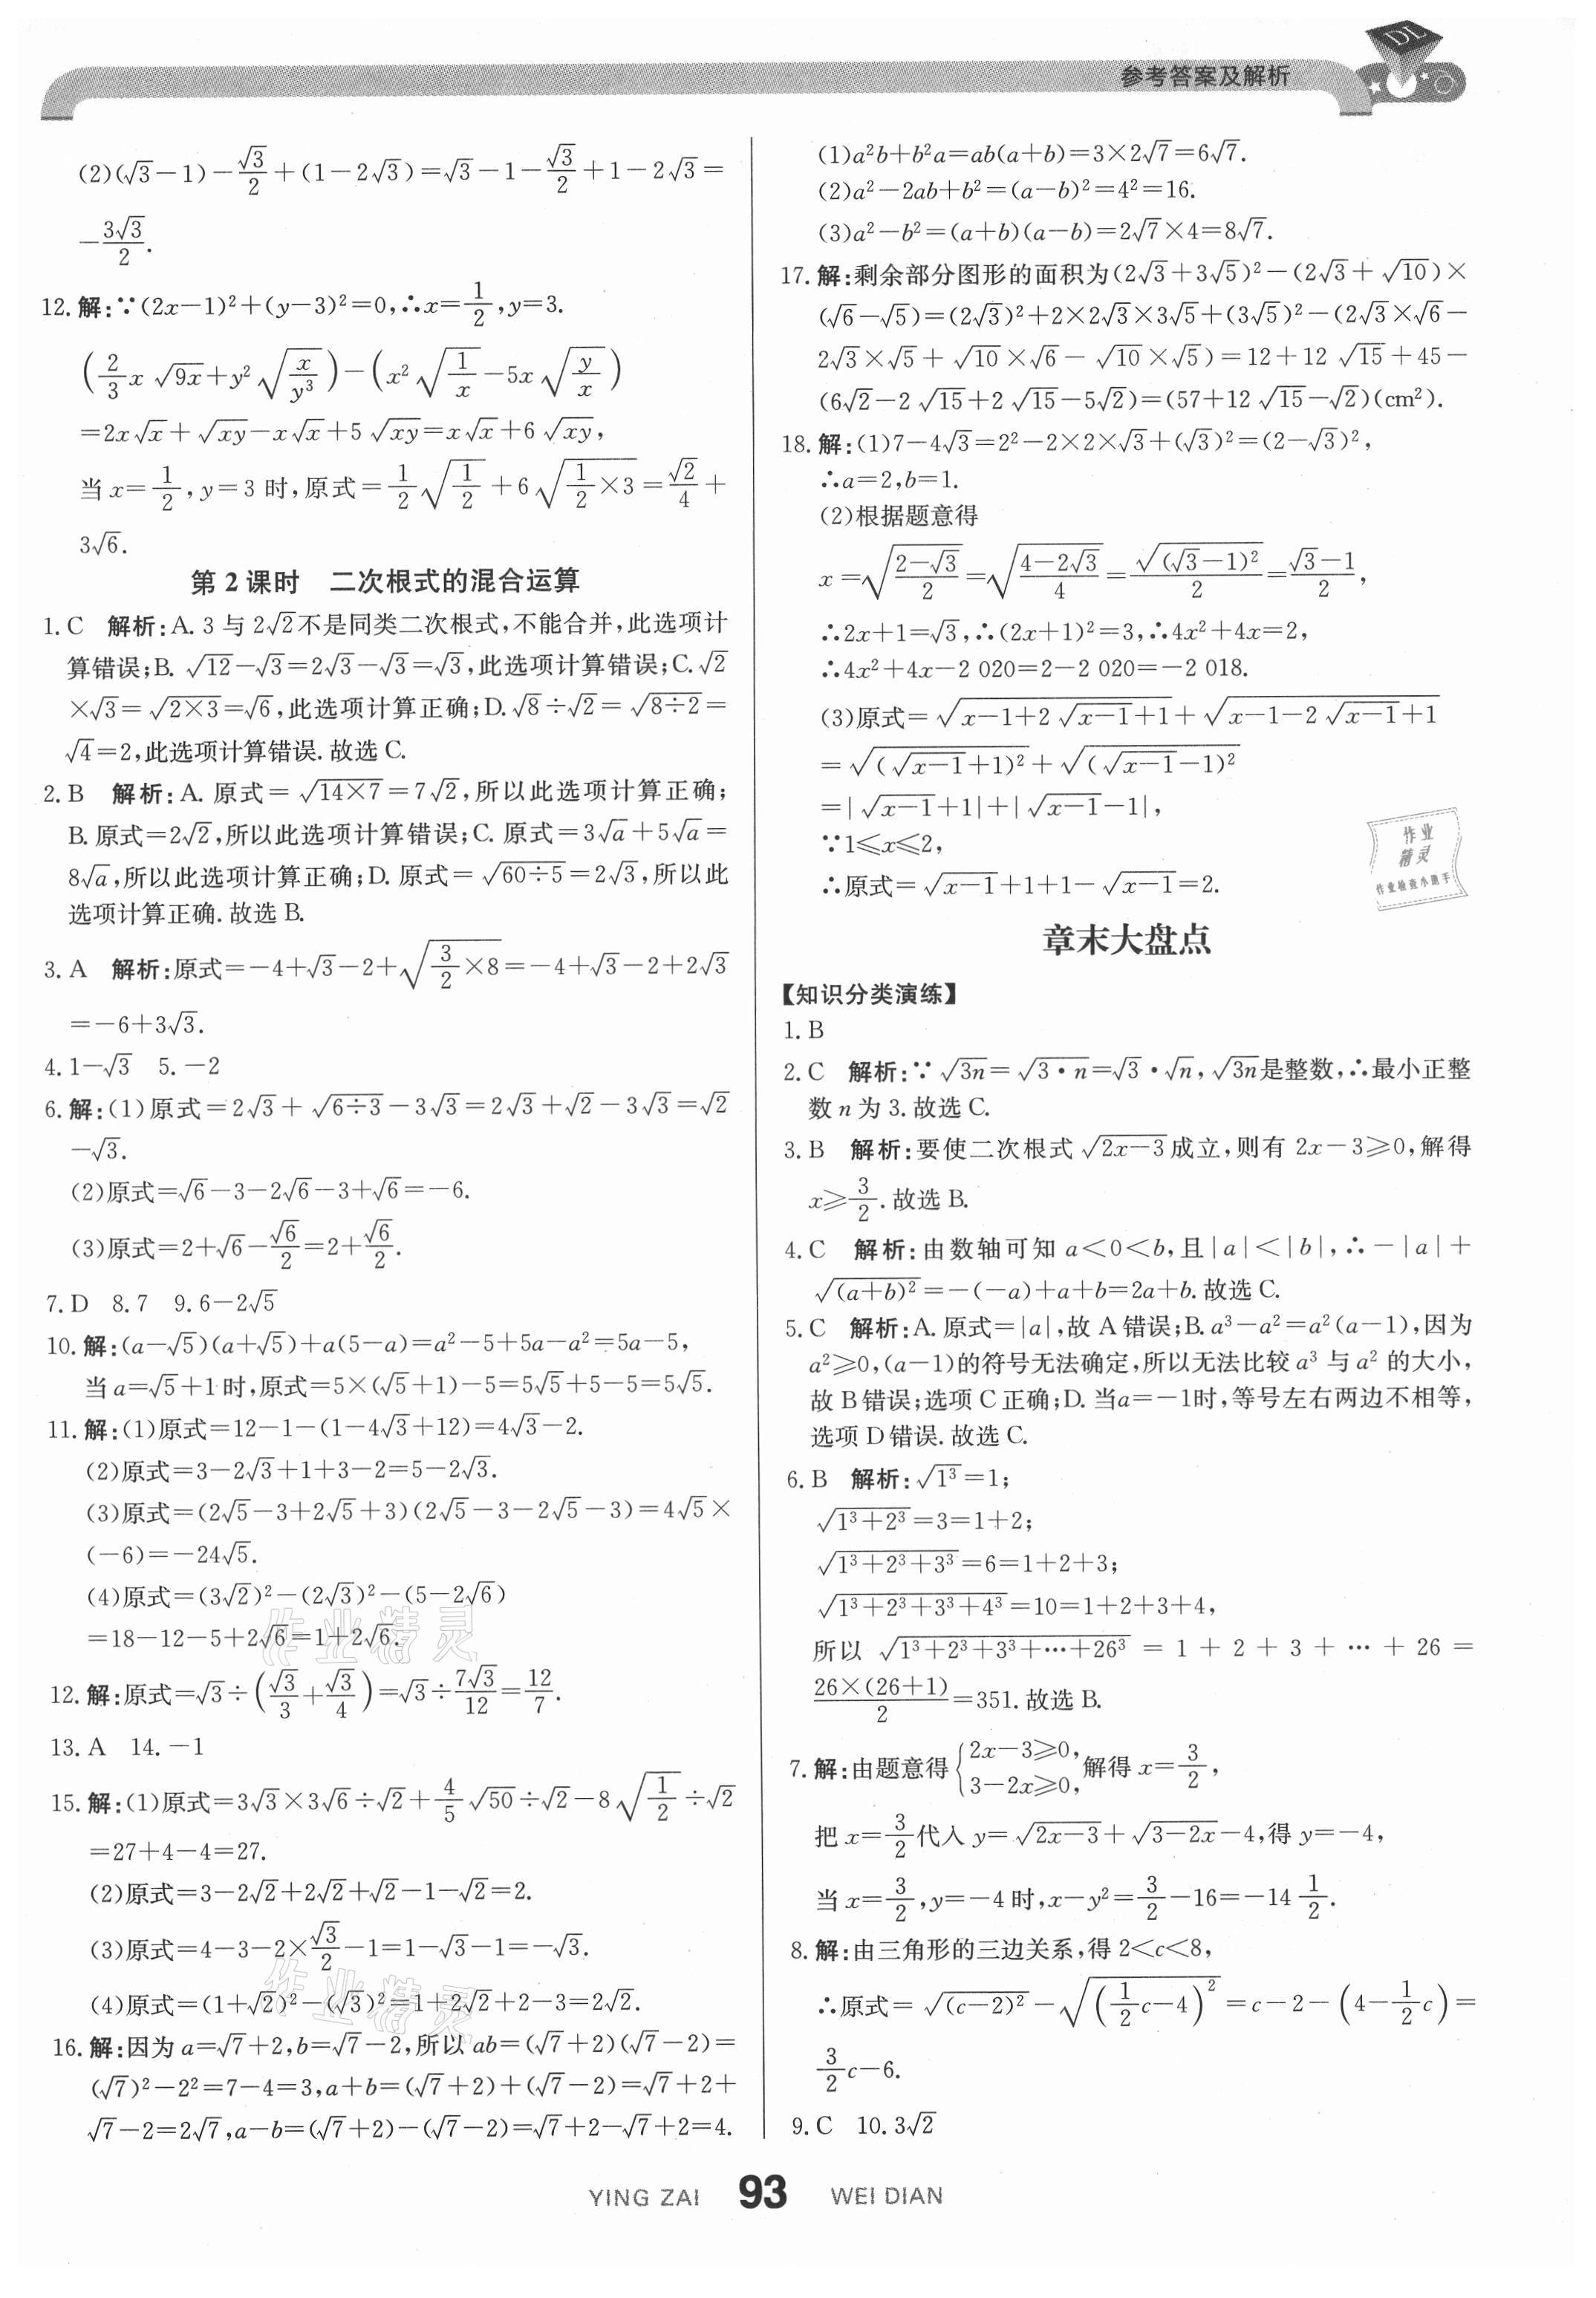 参考答案及解析
DL
(2)(√3−1)−√3/2+(1−2√3)=√3−1−√3/2+1−2√3=
−3√3/2.
12.解:∵(2x−1)²+(y−3)²=0,∴x=1/2,y=3.
(2/3 x√(9x)+y²√(x/y³))−(x²√(1/x)−5x√(y/x))
=2x√x+√(xy)−x√x+5√(xy)=x√x+6√(xy),
当 x=1/2,y=3 时,原式=1/2√(1/2)+6√(1/2×3)=√2/4+
3√6.
第2课时 二次根式的混合运算
1.C 解析:A.3与2√2不是同类二次根式,不能合并,此选项计
算错误;B.√12−√3=2√3−√3=√3,此选项计算错误;C.√2
×√3=√(2×3)=√6,此选项计算正确;D.√8÷√2=√(8÷2)=
√4=2,此选项计算错误.故选C.
2.B 解析:A.原式=√(14×7)=7√2,所以此选项计算正确;
B.原式=2√2,所以此选项计算错误;C.原式=3√a+5√a=
8√a,所以此选项计算正确;D.原式=√(60÷5)=2√3,所以此
选项计算正确.故选B.
3.A 解析:原式=−4+√3−2+√(3/2×8)=−4+√3−2+2√3
=−6+3√3.
4.1−√3 5.−2
6.解:(1)原式=2√3+√(6÷3)−3√3=2√3+√2−3√3=√2
−√3.
(2)原式=√6−3−2√6−3+√6=−6.
(3)原式=2+√6−√6/2=2+√6/2.
7.D 8.7 9.6−2√5
10.解:(a−√5)(a+√5)+a(5−a)=a²−5+5a−a²=5a−5,
当a=√5+1时,原式=5×(√5+1)−5=5√5+5−5=5√5.
11.解:(1)原式=12−1−(1−4√3+12)=4√3−2.
(2)原式=3−2√3+1+3−2=5−2√3.
(3)原式=(2√5−3+2√5+3)(2√5−3−2√5−3)=4√5×
(−6)=−24√5.
(4)原式=(3√2)²−(2√3)²−(5−2√6)
=18−12−5+2√6=1+2√6.
作业精灵
12.解:原式=√3÷(√3/3+√3/4)=√3÷7√3/12=12/7.
13.A 14.−1
15.解:(1)原式=3√3×3√6÷√2+4/5√50÷√2−8√(1/2)÷√2
=27+4−4=27.
(2)原式=3−2√2+2√2+√2−1−√2=2.
(3)原式=4−3−2×√3/2−1=1−√3−1=−√3.
作业精灵
(4)原式=(1+√2)²−(√3)²=1+2√2+2−3=2√2.
16.解:因为a=√7+2,b=√7−2,所以ab=(√7+2)(√7−2)=
(√7)²−2²=7−4=3,a+b=(√7+2)+(√7−2)=√7+2+
√7−2=2√7,a−b=(√7+2)−(√7−2)=√7+2−√7+2=4.
(1)a²b+b²a=ab(a+b)=3×2√7=6√7.
(2)a²−2ab+b²=(a−b)²=4²=16.
(3)a²−b²=(a+b)(a−b)=2√7×4=8√7.
17.解:剩余部分图形的面积为(2√3+3√5)²−(2√3+√10)×
(√6−√5)=(2√3)²+2×2√3×3√5+(3√5)²−(2√3×√6−
2√3×√5+√10×√6−√10×√5)=12+12√15+45−
(6√2−2√15+2√15−5√2)=(57+12√15−√2)(cm²).
18.解:(1)7−4√3=2²−2×2×√3+(√3)²=(2−√3)²,
∴a=2,b=1.
(2)根据题意得
x=√((2−√3)/2)=√((4−2√3)/4)=√((√3−1)²)/2=(√3−1)/2,
∴2x+1=√3,∴(2x+1)²=3,∴4x²+4x=2,
∴4x²+4x−2 020=2−2 020=−2 018.
(3)原式=√(x−1+2√(x−1)+1)+√(x−1−2√(x−1)+1)
=√((√(x−1)+1)²)+√((√(x−1)−1)²)
=|√(x−1)+1|+|√(x−1)−1|,
∵1⩽x⩽2,
∴原式=√(x−1)+1+1−√(x−1)=2.
作业
精灵
作业检查小助手
章末大盘点
【知识分类演练】
1.B
2.C 解析:∵√(3n)=√(3·n)=√3·√n,√(3n)是整数,∴最小正整
数n为3.故选C.
3.B 解析:要使二次根式√(2x−3)成立,则有2x−3⩾0,解得
x⩾3/2.故选B.
4.C 解析:由数轴可知a<0<b,且|a|<|b|,∴−|a|+
√((a+b)²)=−(−a)+a+b=2a+b.故选C.
5.C 解析:A.原式=|a|,故A错误;B.a³−a²=a²(a−1),因为
a²⩾0,(a−1)的符号无法确定,所以无法比较a³与a²的大小,
故B错误;选项C正确;D.当a=−1时,等号左右两边不相等,
选项D错误.故选C.
6.B 解析:√(1³)=1;
√(1³+2³)=3=1+2;
√(1³+2³+3³)=6=1+2+3;
√(1³+2³+3³+4³)=10=1+2+3+4,
所以√(1³+2³+3³+⋯+26³)=1+2+3+⋯+26=
26×(26+1)/2=351.故选B.
7.解:由题意得{2x−3⩾0, 3−2x⩾0,解得x=3/2,
把x=3/2代入y=√(2x−3)+√(3−2x)−4,得y=−4,
当x=3/2,y=−4时,x−y²=3/2−16=−14 1/2.
8.解:由三角形的三边关系,得2<c<8,
∴原式=√((c−2)²)−√((1/2c−4)²)=c−2−(4−1/2c)=
3/2c−6.
9.C 10.3√2
YING ZAI 93 WEI DIAN